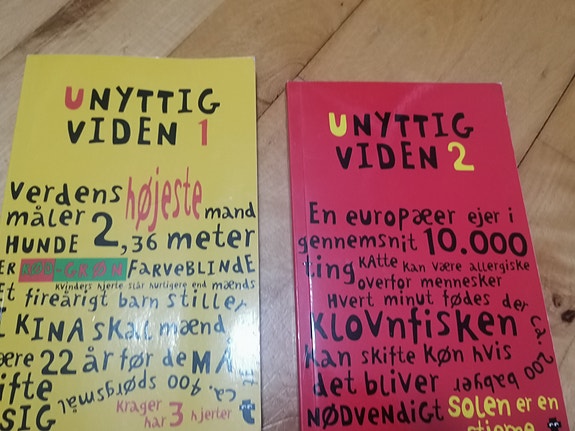 UNYTTIG
VIDEN 1
Verdens højeste mand
måler 2,36 meter
HUNDE
ER RØD-GRØN FARVEBLINDE
Kvinders hjerte slår hurtigere end mænds
Et fireårigt barn stiller
ca. 400 spørgsmål
I KINA skal mænd
være 22 år før de MÅ
gifte
SIG
Krager
har 3 hjerter
UNYTTIG
VIDEN 2
En europæer ejer i
gennemsnit 10.000
ting Katte kan være allergiske
overfor mennesker
Hvert minut fødes der
ca. 200
babyer
Klovnfisken
kan skifte køn hvis
det bliver
NØDVENDIGT
SOLEN er en
stjerne